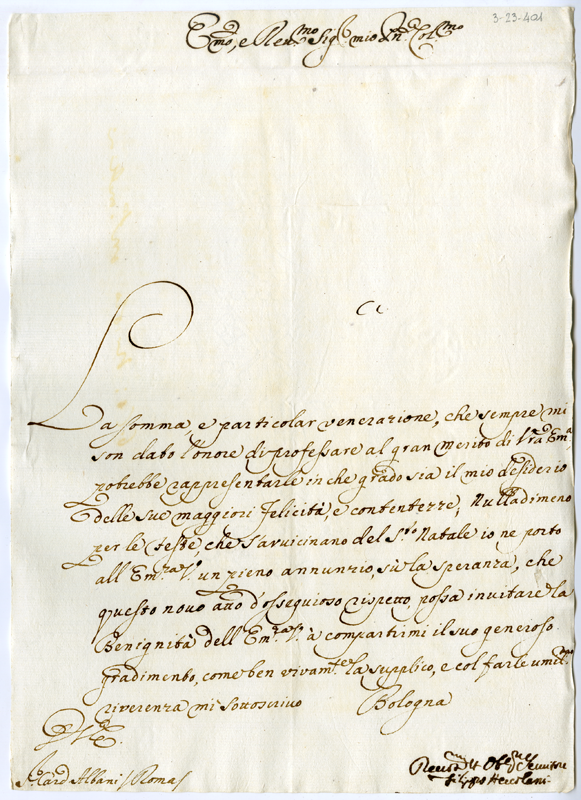 3-23-401
Em̃o, e Reu.mo Sig.r mio Pñ Col.mo
La somma, e particolar venerazione, che sempre mi
son dato l'onore di professare al gran merito di Vrã Em.a
potrebbe rappresentarle in che grado sia il mio desiderio
delle sue maggiori Felicità, e contentezze; Nulladimeno
per le feste, che s'avvicinano del S.to Natale io ne porto
all Em.za V. un pieno annunzio, sù la speranza, che
questo novo atto d'ossequioso rispetto, possa invitare la
Benignità dell Em.za V. à compartirmi il suo generoso
gradimento, come ben vivam.te la supplico, e col farle umil.ma
riverenza mi sottoscrivo Bologna
D V E.
S.r Card Albani / Roma /
Servitore
Filippo Hercolani